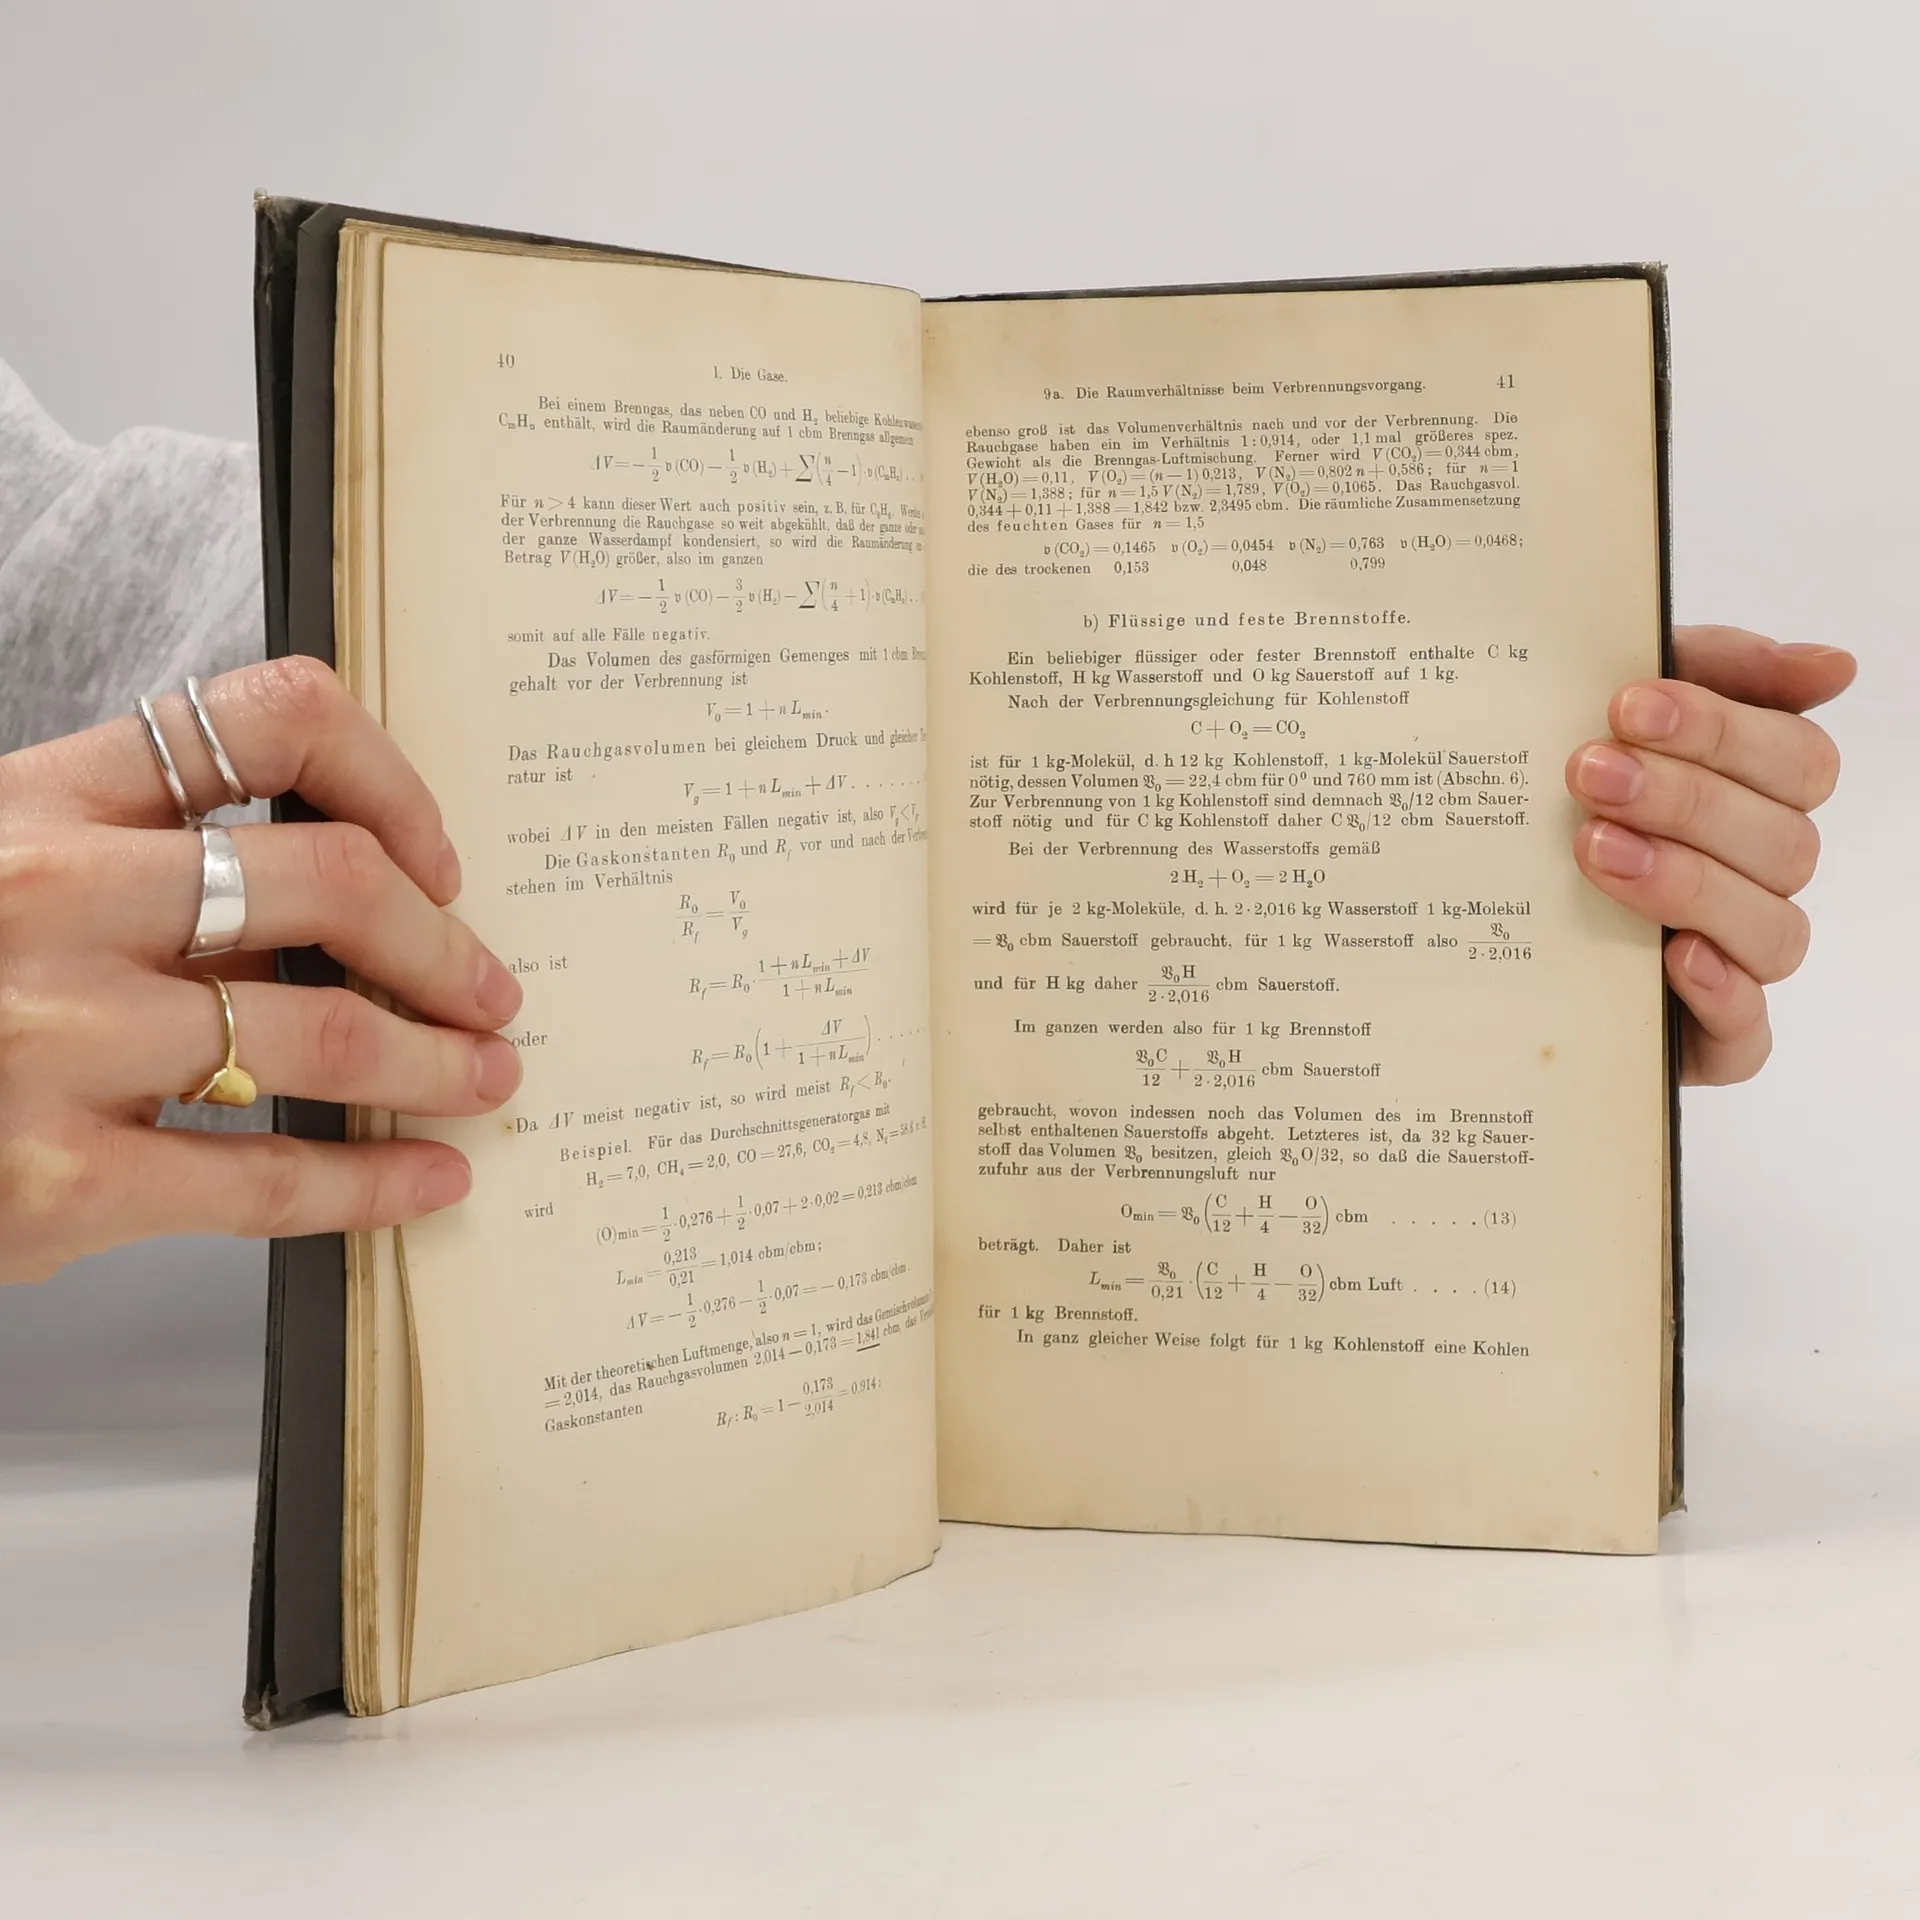 40
I. Die Gase.
Bei einem Brenngas, das neben CO und H₂ beliebige
CₘHₙ enthält, wird die Raumänderung auf 1 cbm Brenngas allgemein
ΔV = − 1/2 v (CO) − 1/2 v (H₂) + ∑(n/4 − 1) · v (CₘHₙ) . .
Für n > 4 kann dieser Wert auch positiv sein, z. B. für C₆H₆.
der Verbrennung die Rauchgase so weit abgekühlt, daß der ganze oder
der ganze Wasserdampf kondensiert, so wird die Raumänderung
Betrag V (H₂O) größer, also im ganzen
ΔV = − 1/2 v (CO) − 3/2 v (H₂) − ∑(n/4 + 1) · v (CₘHₙ) . .
somit auf alle Fälle negativ.
Das Volumen des gasförmigen Gemenges mit 1 cbm
gehalt vor der Verbrennung ist
V₀ = 1 + n Lmin.
Das Rauchgasvolumen bei gleichem Druck und gleicher
ratur ist
Vg = 1 + n Lmin + ΔV . . . . . .
wobei ΔV in den meisten Fällen negativ ist, also
Die Gaskonstanten R₀ und Rf vor und nach der
stehen im Verhältnis
R₀/Rf = V₀/Vg
also ist
Rf = R₀ · (1 + n Lmin + ΔV)/(1 + n Lmin)
oder
Rf = R₀ (1 + ΔV/(1 + n Lmin)) . . . . .
Da ΔV meist negativ ist, so wird meist Rf < R₀.
Beispiel. Für das Durchschnittsgeneratorgas mit
H₂ = 7,0, CH₄ = 2,0, CO = 27,6, CO₂ = 4,8, N₂ = 58,6
wird
(O)min = 1/2 · 0,276 + 1/2 · 0,07 + 2 · 0,02 = 0,213 cbm/cbm
Lmin = 0,213/0,21 = 1,014 cbm/cbm;
ΔV = − 1/2 · 0,276 − 1/2 · 0,07 = − 0,173 cbm/cbm.
Mit der theoretischen Luftmenge, also n = 1, wird das Gemischvolumen
= 2,014, das Rauchgasvolumen 2,014 − 0,173 = 1,841 cbm, das
Gaskonstanten
Rf : R₀ = 1 − 0,173/2,014 = 0,914;
9a. Die Raumverhältnisse beim Verbrennungsvorgang. 41
ebenso groß ist das Volumenverhältnis nach und vor der Verbrennung. Die
Rauchgase haben ein im Verhältnis 1 : 0,914, oder 1,1 mal größeres spez.
Gewicht als die Brenngas-Luftmischung. Ferner wird V (CO₂) = 0,344 cbm,
V (H₂O) = 0,11, V (O₂) = (n − 1) 0,213, V (N₂) = 0,802 n + 0,586; für n = 1
V (N₂) = 1,388; für n = 1,5 V (N₂) = 1,789, V (O₂) = 0,1065. Das Rauchgasvol.
0,344 + 0,11 + 1,388 = 1,842 bzw. 2,3495 cbm. Die räumliche Zusammensetzung
des feuchten Gases für n = 1,5
v (CO₂) = 0,1465 v (O₂) = 0,0454 v (N₂) = 0,763 v (H₂O) = 0,0468;
die des trockenen 0,153 0,048 0,799
b) Flüssige und feste Brennstoffe.
Ein beliebiger flüssiger oder fester Brennstoff enthalte C kg
Kohlenstoff, H kg Wasserstoff und O kg Sauerstoff auf 1 kg.
Nach der Verbrennungsgleichung für Kohlenstoff
C + O₂ = CO₂
ist für 1 kg-Molekül, d. h 12 kg Kohlenstoff, 1 kg-Molekül Sauerstoff
nötig, dessen Volumen 𝔅₀ = 22,4 cbm für 0⁰ und 760 mm ist (Abschn. 6).
Zur Verbrennung von 1 kg Kohlenstoff sind demnach 𝔅₀/12 cbm Sauer-
stoff nötig und für C kg Kohlenstoff daher C 𝔅₀/12 cbm Sauerstoff.
Bei der Verbrennung des Wasserstoffs gemäß
2 H₂ + O₂ = 2 H₂O
wird für je 2 kg-Moleküle, d. h. 2 · 2,016 kg Wasserstoff 1 kg-Molekül
= 𝔅₀ cbm Sauerstoff gebraucht, für 1 kg Wasserstoff also 𝔅₀/(2 · 2,016)
und für H kg daher 𝔅₀ H/(2 · 2,016) cbm Sauerstoff.
Im ganzen werden also für 1 kg Brennstoff
𝔅₀ C/12 + 𝔅₀ H/(2 · 2,016) cbm Sauerstoff
gebraucht, wovon indessen noch das Volumen des im Brennstoff
selbst enthaltenen Sauerstoffs abgeht. Letzteres ist, da 32 kg Sauer-
stoff das Volumen 𝔅₀ besitzen, gleich 𝔅₀ O/32, so daß die Sauerstoff-
zufuhr aus der Verbrennungsluft nur
Omin = 𝔅₀ (C/12 + H/4 − O/32) cbm . . . . . (13)
beträgt. Daher ist
Lmin = 𝔅₀/0,21 · (C/12 + H/4 − O/32) cbm Luft . . . . (14)
für 1 kg Brennstoff.
In ganz gleicher Weise folgt für 1 kg Kohlenstoff eine Kohlen